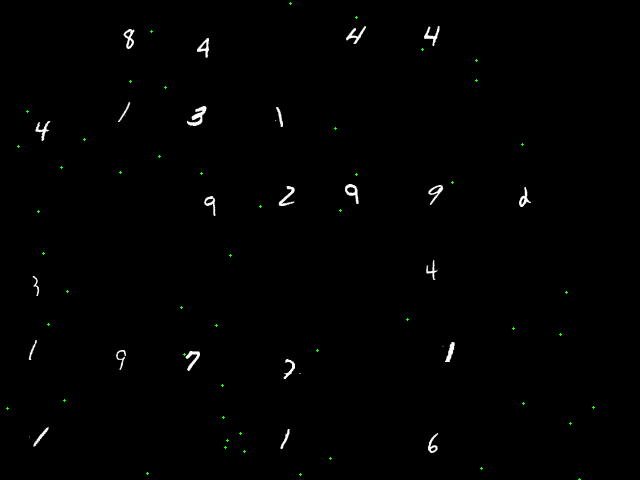 8 4 4 4
4 1 3 1
9 2 9 9 2
3 4
1 9 7 2 1
1 1 6